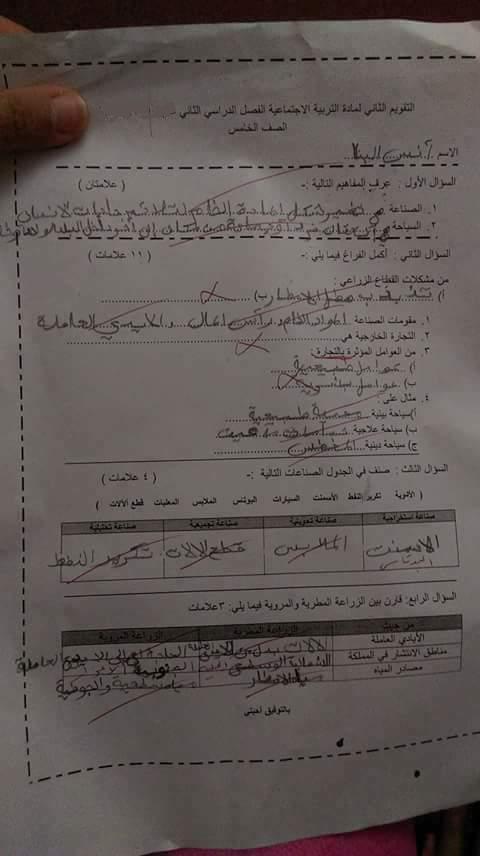 التقويم الثاني لمادة التربية الاجتماعية الفصل الدراسي الثاني
الصف الخامس
الاسم
السؤال الأول : عرف المفاهيم التالية :- ( علامتان )
١. الصناعة هي تغيير شكل المادة الخام لتلائم حاجات الانسان
٢. السياحة
السؤال الثاني : أكمل الفراغ فيما يلي :- ( ١١ علامات )
من مشكلات القطاع الزراعي :
أ) تذبذب هطل الامطار ب)
١. مقومات الصناعة المواد الخام ورأس المال والايدي العاملة
٢. التجارة الخارجية هي
٣. من العوامل المؤثرة بالتجارة :
أ) عوامل طبيعية
ب) عوامل بشرية
٤. مثال على :
أ) سياحة بيئية محمية طبيعية
ب) سياحة علاجية حمامات ماعين
ج) سياحة دينية المغطس
السؤال الثالث : صنف في الجدول الصناعات التالية :- ( ٤ علامات )
( الأدوية تكرير النفط الأسمنت السيارات البوتاس الملابس المعلبات قطع ألآلات )
صناعة استخراجية صناعة تحويلية صناعة تجميعية صناعة تحليلية
الاسمنت الملابس قطع الالات تكرير النفط
البوتاس
السؤال الرابع: قارن بين الزراعة المطرية والمروية فيما يلي: ٣علامات
من حيث الزراعة المطرية الزراعة المروية
الأيادي العاملة
مناطق الانتشار في المملكة
مصادر المياه مياه الامطار
بالتوفيق أحبتي